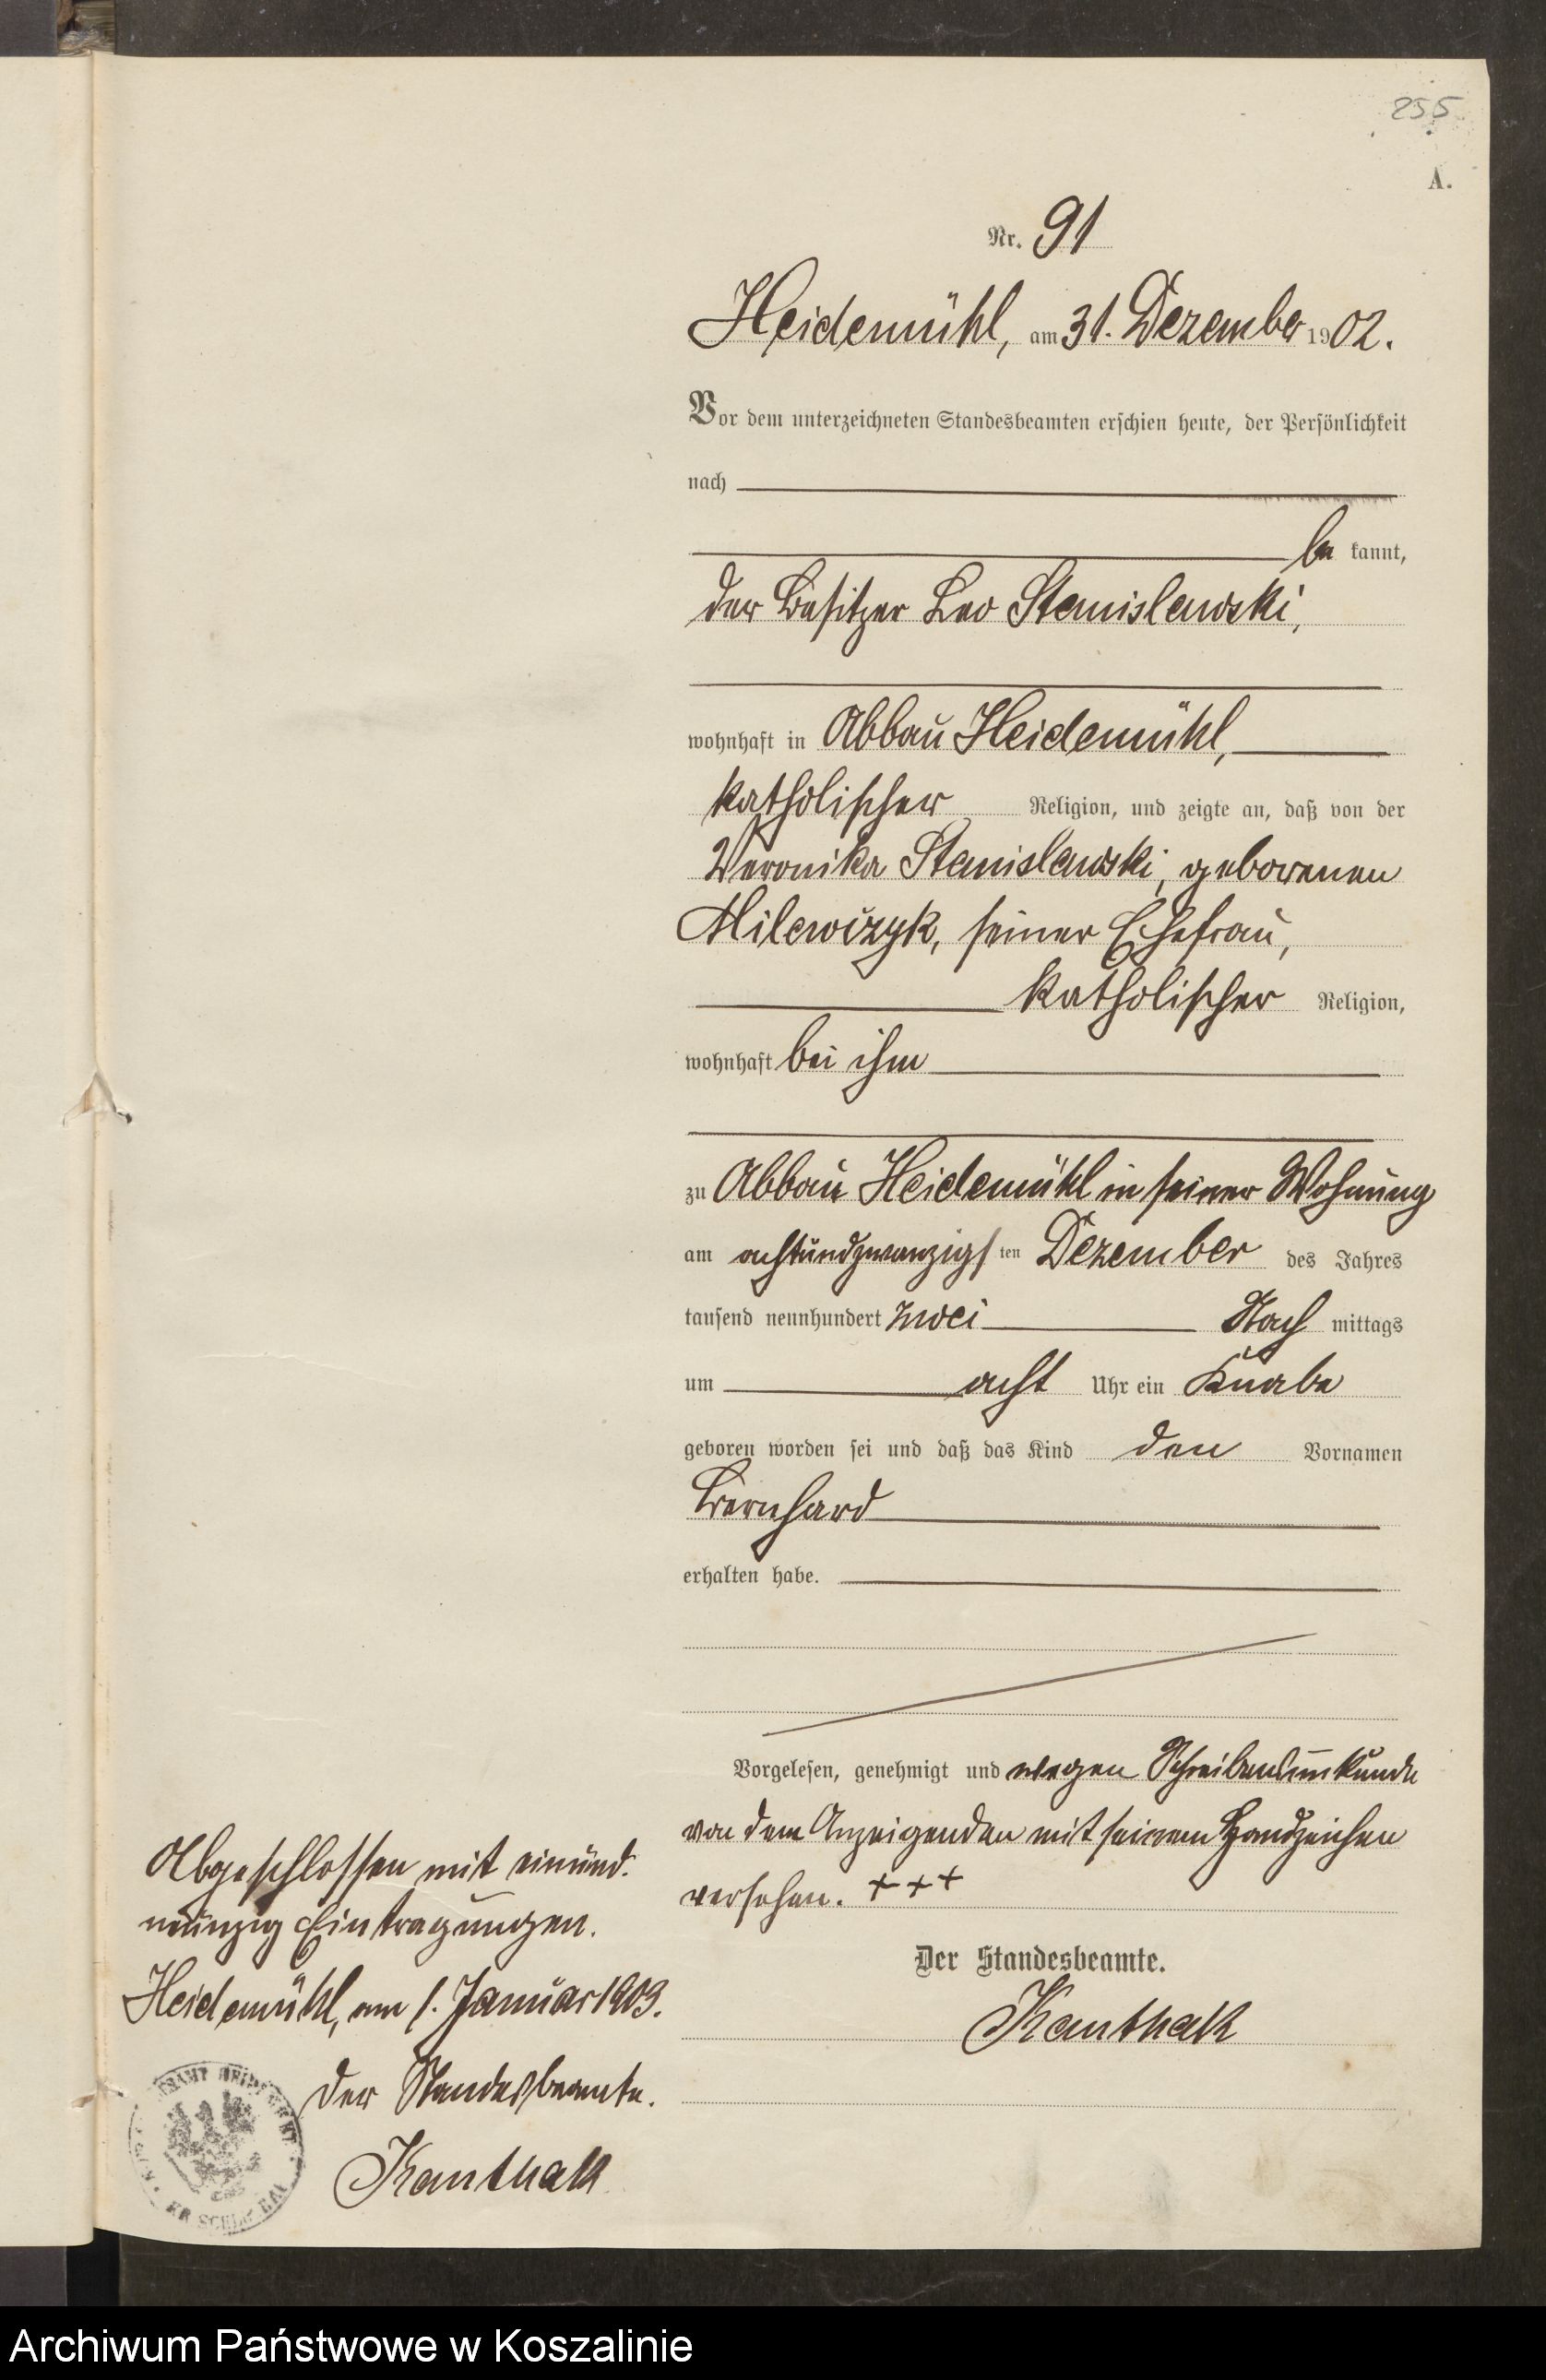 255
A.
Nr. 91
Heidemühl, am 31. Dezember 1902.
Vor dem unterzeichneten Standesbeamten erschien heute, der Persönlichkeit
nach
be kannt,
der Besitzer Leo Stanislawski,
wohnhaft in Abbau Heidemühl,
katholischer Religion, und zeigte an, daß von der
Veronika Stanislawski, geborenen
Milewczyk, seiner Ehefrau,
katholischer Religion,
wohnhaft bei ihm
zu Abbau Heidemühl in seiner Wohnung
am achtundzwanzigsten Dezember des Jahres
tausend neunhundert zwei Nach mittags
um acht Uhr ein Knabe
geboren worden sei und daß das Kind den Vornamen
Bernhard
erhalten habe.
Vorgelesen, genehmigt und wegen Schreibensunkunde
von dem Anzeigenden mit seinem Handzeichen
versehen. +++
Der Standesbeamte.
Kanthak
Abgeschlossen mit einund-
neunzig Eintragungen.
Heidemühl, am 1. Januar 1903.
Der Standesbeamte.
Kanthak
Archiwum Państwowe w Koszalinie